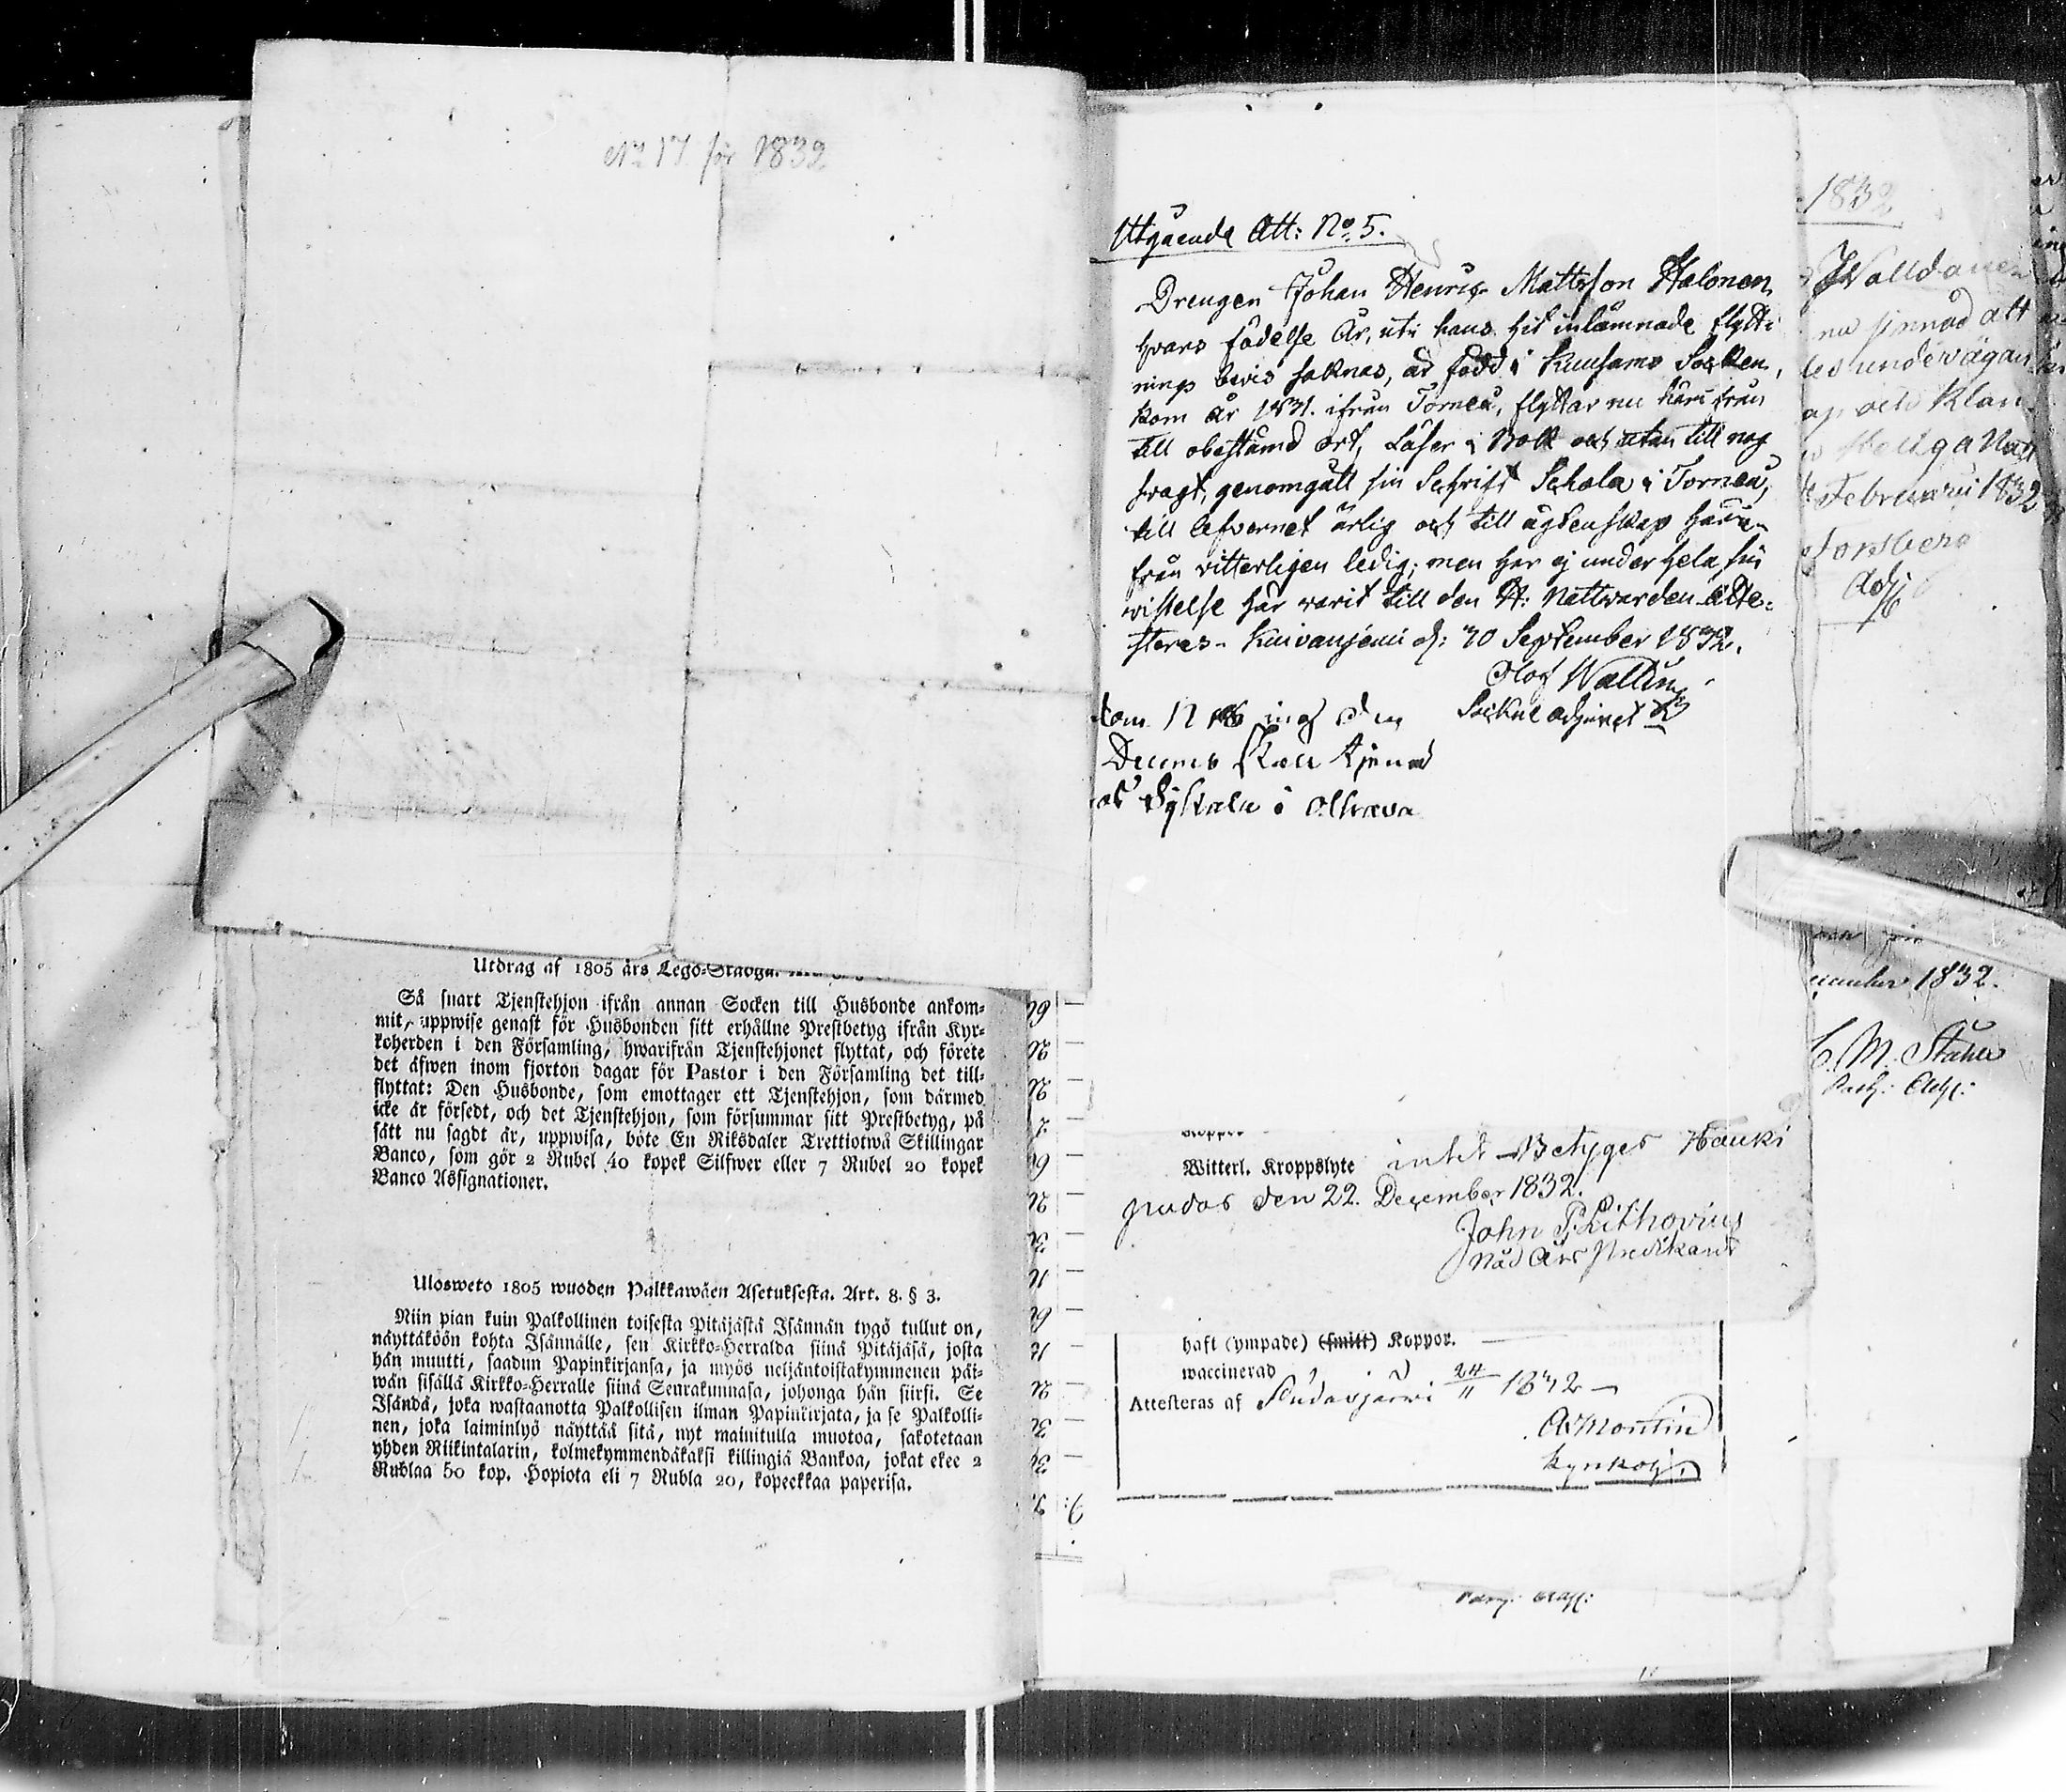 N:o 17 för 1832
Utdrag af 1805 års Lego-Stadga.
Så snart Tjenstehjon ifrån annan Socken till Husbonde ankom-
mit, uppwise genast för Husbonden sitt erhållne Prestbetyg ifrån Kyr-
koherden i den Församling, hwarifrån Tjenstehjonet flyttat, och förete
det äfwen inom fjorton dagar för Pastor i den Församling det till-
flyttat: Den Husbonde, som emottager ett Tjenstehjon, som därmed
icke är försedt, och det Tjenstehjon, som försummar sitt Prestbetyg, på
sätt nu sagdt är, uppwisa, böte En Riksdaler Trettiotwå Skillingar
Banco, som gör 2 Rubel 40 kopek Silfwer eller 7 Rubel 20 kopek
Banco Assignationer.
Ulosweto 1805 wuoden Palkkawäen Asetuksesta. Art. 8. § 3.
Niin pian kuin Palkollinen toisesta Pitäjästä Isännän tygö tullut on,
näyttäköön kohta Isännälle, sen Kirkko-Herralda siinä Pitäjäsä, josta
hän muutti, saadun Papinkirjansa, ja myös neljäntoistakymmenen päi-
wän sisällä Kirkko-Herralle siinä Seurakunnasa, johonga hän siirsi. Se
Isändä, joka wastaanotta Palkollisen ilman Papinkirjata, ja se Palkolli-
nen, joka laiminlyö näyttää sitä, nyt mainitulla muotoa, sakotetaan
yhden Riikintalarin, kolmekymmendäkaksi killingiä Bankoa, jokat ekee 2
Rublaa 50 kop. Hopiota eli 7 Rubla 20, kopeekkaa paperisa.
Utgående Att: No. 5.
Drengen Johan Henric Mattsson Halonen
hvars födelse År, uti hans hit inlämnade flytt-
nings bevis saknas, är född i Kuusamo Socken,
kom år 1831. ifrån Torneå, flyttar nu härifrån
till obestämd ort, Läser i Bok och utan till nog
svagt, genomgått sin Schrift Schola i Torneå,
till lefvernet ärlig och till ägtenskap härin-
från vitterligen ledig; men har ej under hela sin
wistelse här warit till den H: Nattwarden Atte-
steras. Kuivaniemi d: 30 September 1832.
Olof Wallin
Socknе adjunct
Denne skall tjena
i Olhava
Witterl. Kroppslyte intet Betyges Hauki
pudas den 22. December 1832.
John P: Lithovius
Nåd Års Predikant
haft (ympade) (smitt) Koppor.
waccinerad
Attesteras af Pudasjärvi 24/11 1832
A Montin
Kyrkoh.
1832
Walldaner
nu sinnad att
och Klan
Heliga Natt
Februarii 1832
Forsberg
Adj
1832.
C. M. Stahe